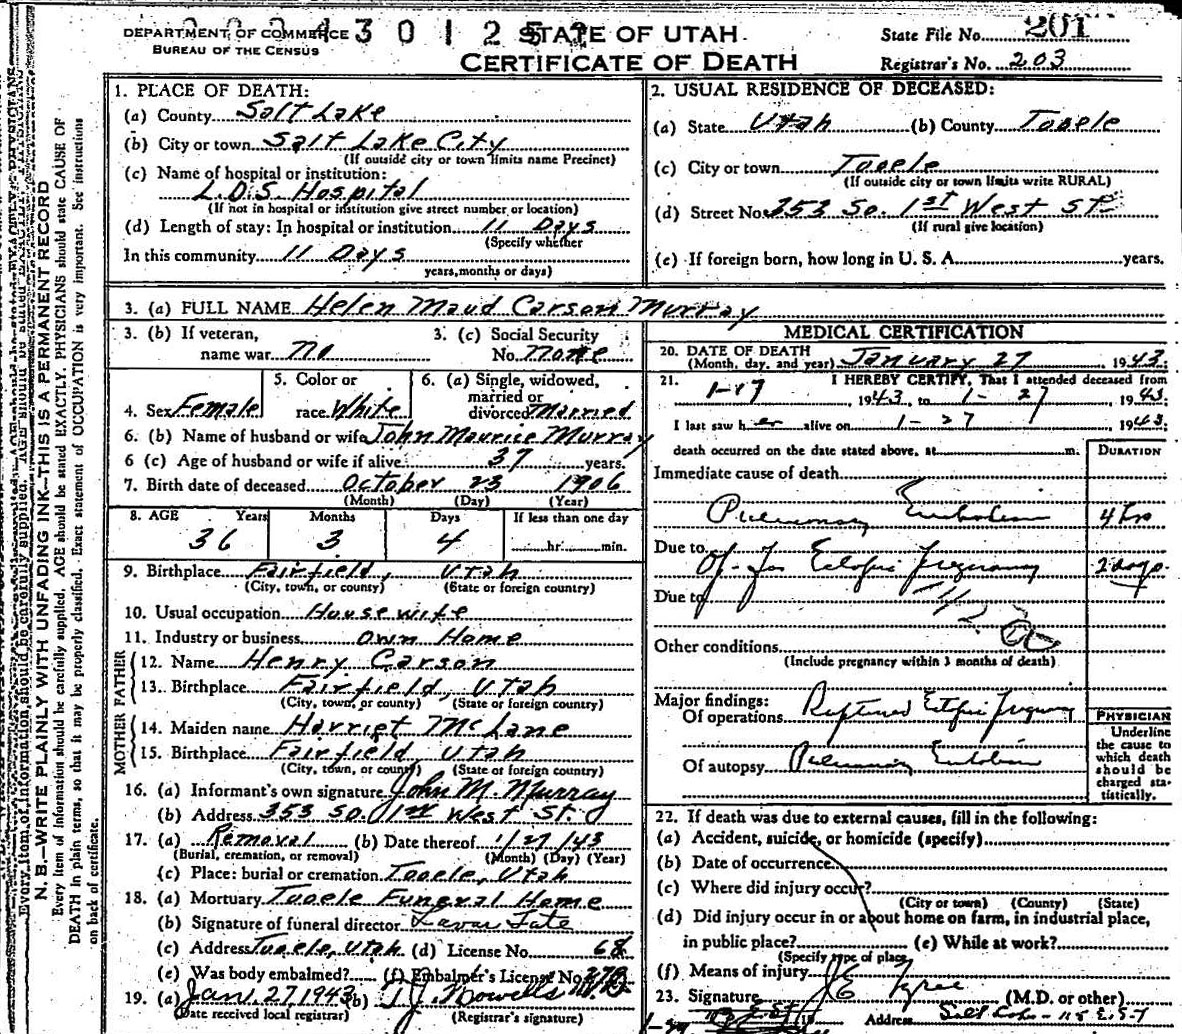 DEPARTMENT OF COMMERCE
BUREAU OF THE CENSUS
STATE OF UTAH
CERTIFICATE OF DEATH
State File No. 201
Registrar's No. 203
N. B.—WRITE PLAINLY WITH UNFADING INK—THIS IS A PERMANENT RECORD
Every item of information should be carefully supplied. AGE should be stated EXACTLY. PHYSICIANS should state CAUSE OF
DEATH in plain terms, so that it may be properly classified. Exact statement of OCCUPATION is very important. See instructions
on back of certificate.
1. PLACE OF DEATH:
(a) County Salt Lake
(b) City or town Salt Lake City
(If outside city or town limits name Precinct)
(c) Name of hospital or institution:
L.D.S. Hospital
(If not in hospital or institution give street number or location)
(d) Length of stay: In hospital or institution 11 Days
(Specify whether
In this community 11 Days
years, months or days)
2. USUAL RESIDENCE OF DECEASED:
(a) State Utah (b) County Tooele
(c) City or town Tooele
(If outside city or town limits write RURAL)
(d) Street No. 353 So. 1st West St.
(If rural give location)
(e) If foreign born, how long in U. S. A. years.
3. (a) FULL NAME Helen Maud Carson Murray
3. (b) If veteran, name war no
3. (c) Social Security No. none
4. Sex Female
5. Color or race White
6. (a) Single, widowed, married or divorced Married
6. (b) Name of husband or wife John Maurice Murray
6 (c) Age of husband or wife if alive 37 years.
7. Birth date of deceased October 23 1906
(Month) (Day) (Year)
8. AGE Years Months Days If less than one day
36 3 4 hr. min.
9. Birthplace Fairfield, Utah
(City, town, or county) (State or foreign country)
10. Usual occupation Housewife
11. Industry or business Own Home
FATHER
12. Name Henry Carson
13. Birthplace Fairfield, Utah
(City, town, or county) (State or foreign country)
MOTHER
14. Maiden name Harriet McLane
15. Birthplace Fairfield Utah
(City, town, or county) (State or foreign country)
16. (a) Informant's own signature John M. Murray
(b) Address 353 So. 1st West St.
17. (a) Removal (b) Date thereof 1/27/43
(Burial, cremation, or removal) (Month) (Day) (Year)
(c) Place: burial or cremation Tooele, Utah
18. (a) Mortuary Tooele Funeral Home
(b) Signature of funeral director Lavar Tate
(c) Address Tooele, Utah (d) License No. 68
(e) Was body embalmed? (f) Embalmer's License No.
19. (a) Jan. 27, 1943 (b) T. J. Howells
(Date received local registrar) (Registrar's signature)
MEDICAL CERTIFICATION
20. DATE OF DEATH
(Month, day, and year) January 27 1943;
21. I HEREBY CERTIFY, That I attended deceased from
1-17, 1943, to 1-27, 1943;
I last saw her alive on 1-27, 1943;
death occurred on the date stated above, at m.
DURATION
Immediate cause of death
Pulmonary Embolism 4 hrs
Due to Op-for Ectopic Pregnancy 2 days
Due to
Other conditions
(Include pregnancy within 3 months of death)
Major findings:
Of operations Ruptured Ectopic Pregnancy
Of autopsy Pulmonary Embolism
PHYSICIAN
Underline
the cause to
which death
should be
charged sta-
tistically.
22. If death was due to external causes, fill in the following:
(a) Accident, suicide, or homicide (specify)
(b) Date of occurrence
(c) Where did injury occur?
(City or town) (County) (State)
(d) Did injury occur in or about home on farm, in industrial place,
in public place? (e) While at work?
(Specify type of place)
(f) Means of injury
23. Signature (M.D. or other)
Address